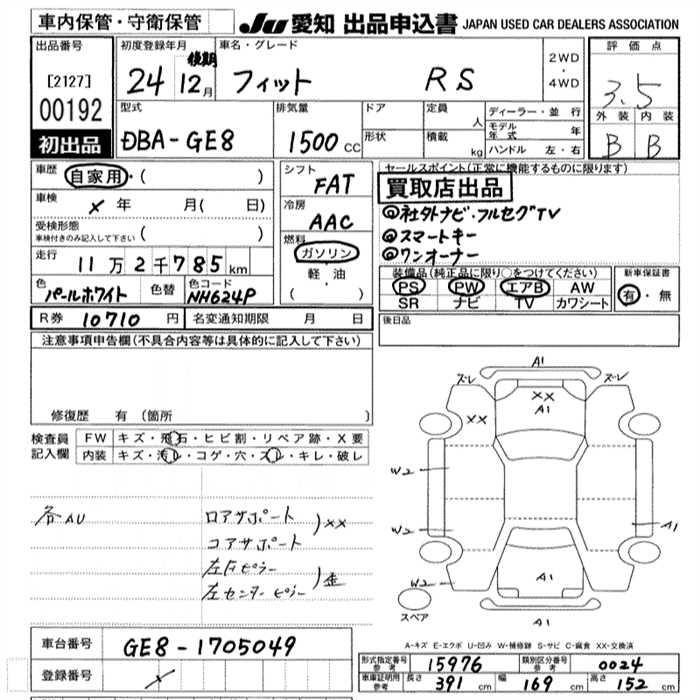 車内保管・守衛保管
JU 愛知 出品申込書 JAPAN USED CAR DEALERS ASSOCIATION
出品番号
[2127]
00192
初出品
初度登録年月
後期
24 12月
車名・グレード
フィット RS
2WD
・
4WD
評価点
3.5
外装 内装
B B
型式
DBA-GE8
排気量
1500 CC
ドア
形状
定員 人
積載 kg
ディーラー・並行
モデル年式 年
ハンドル 左・右
車歴
自家用・( )
車検
× 年 月( 日)
受検形態
車検付きのみ記入して下さい ( )
走行
11万2千785km
色
パールホワイト
色替
色コード
NH624P
シフト
FAT
冷房
AAC
燃料
ガソリン
軽・油
( )
セールスポイント(正常に機能するものに限ります)
買取店出品
◎社外ナビ・フルセグTV
◎スマートキー
◎ワンオーナー
装備品(純正品に限り○をつけてください)
PS PW エアB AW
SR ナビ TV カワシート
新車保証書
有・無
R券 10710 円
名変通知期限 月 日
後日品
注意事項申告欄(不具合内容等は具体的に記入して下さい)
修復歴 有 (箇所 )
検査員
記入欄
FW キズ・飛石・ヒビ割・リペア跡・X要
内装 キズ・汚レ・コゲ・穴・スレ・キレ・破レ
各AU
ロアサポート
コアサポート
)××
左Fピラー
左センターピラー
)歪
A1
ズレ ズレ
××
A1
××
W2
W2
A1
W2
A1
スペア
A1
A-キズ E-エクボ U-凹み W-補修跡 S-サビ C-腐食 XX-交換済
車台番号 GE8-1705049
登録番号 ×
形式指定番号
参考
15976
類別区分番号
参考
0024
車庫証明用
参考
長さ 391 cm 幅 169 cm 高さ 152 cm